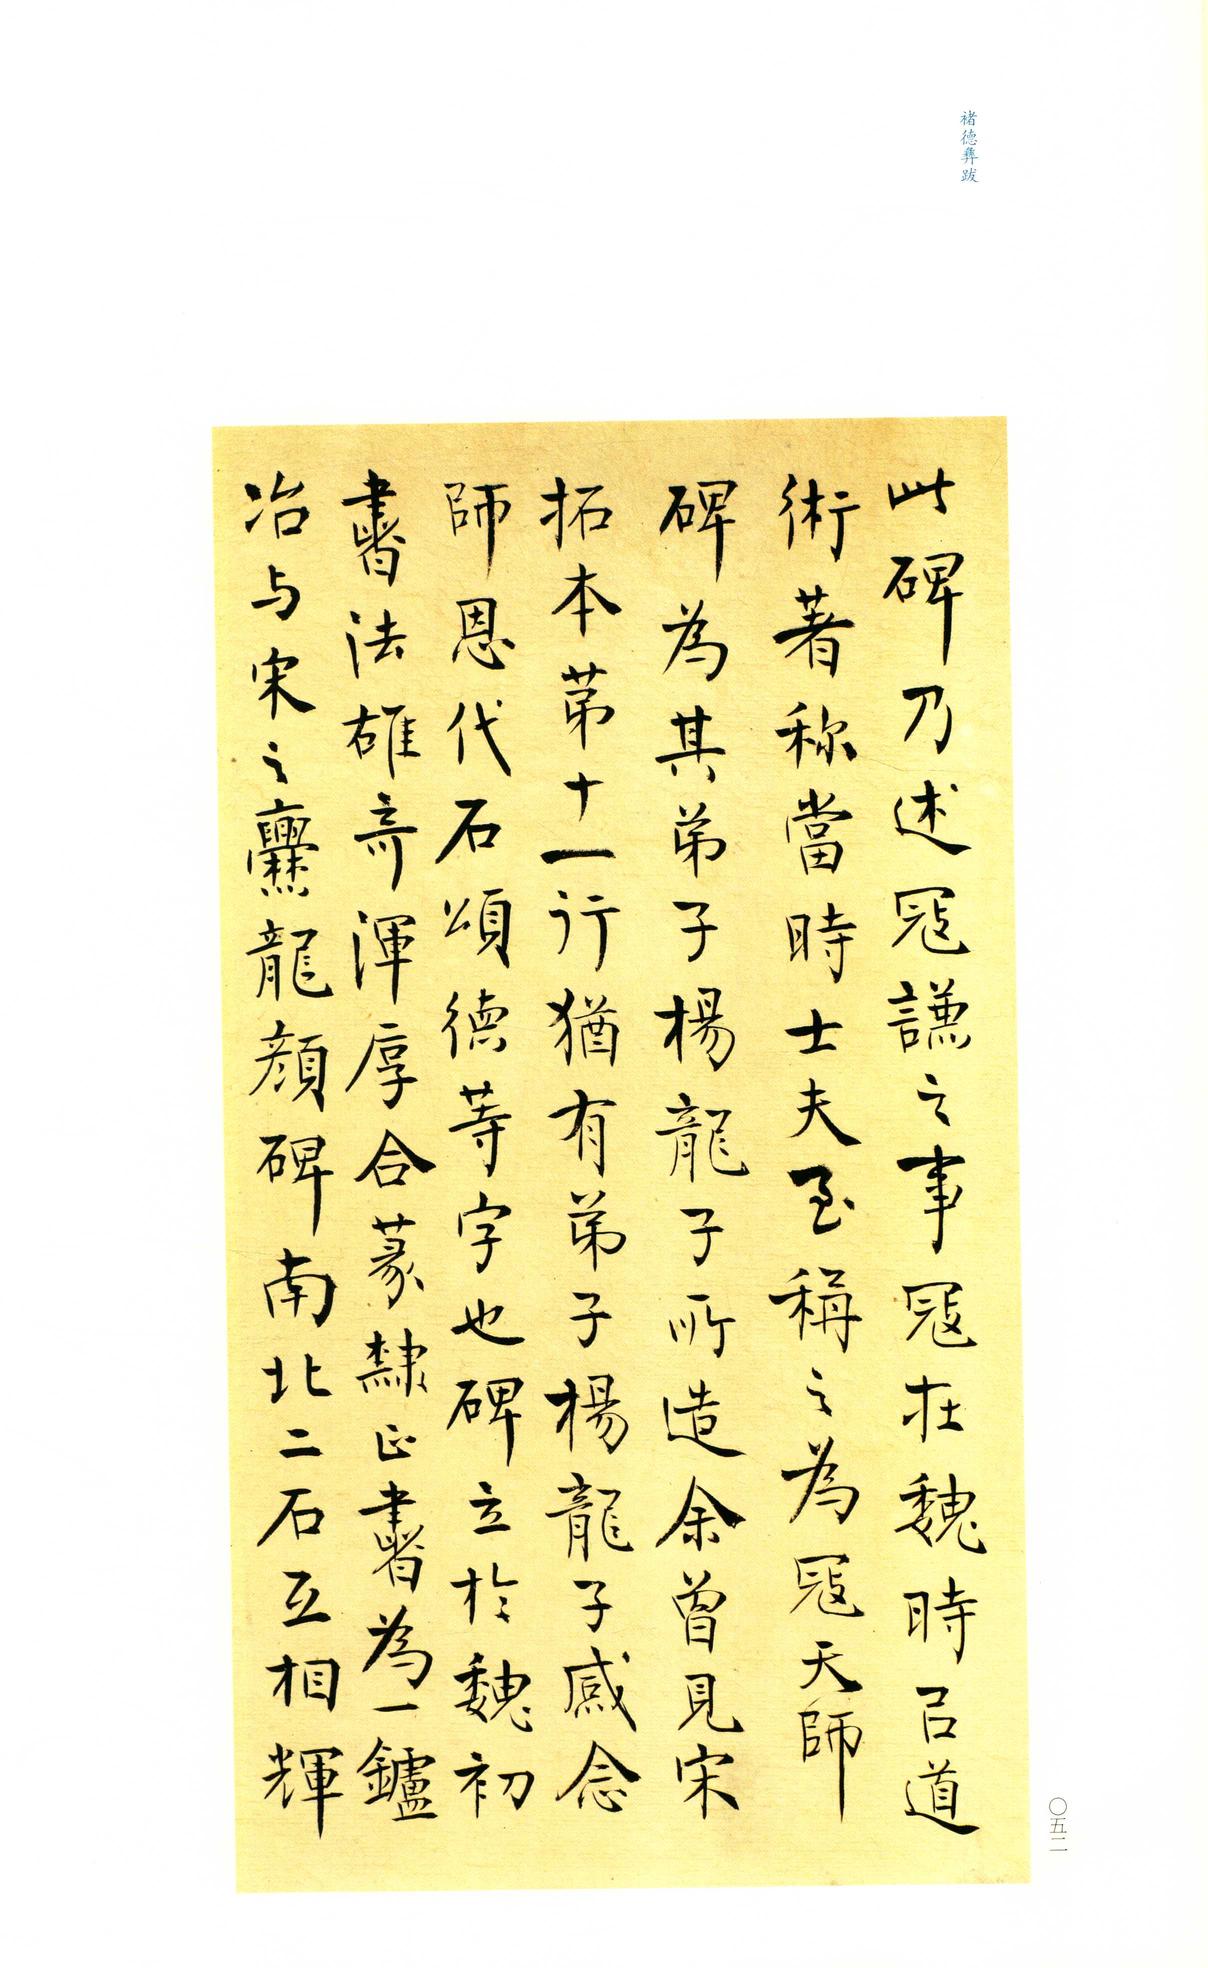 褚德彝跋
此碑乃述冦謙之事冦在魏時㠯道
術著称當時士夫至稱之為冦天師
碑為其弟子楊龍子所造余曾見宋
拓本第十一行猶有弟子楊龍子感念
師恩代石頌德等字也碑立於魏初
書法雄奇渾厚合篆隸正書為一鑪
冶与宋之爨龍顔碑南北二石互相輝
〇五二